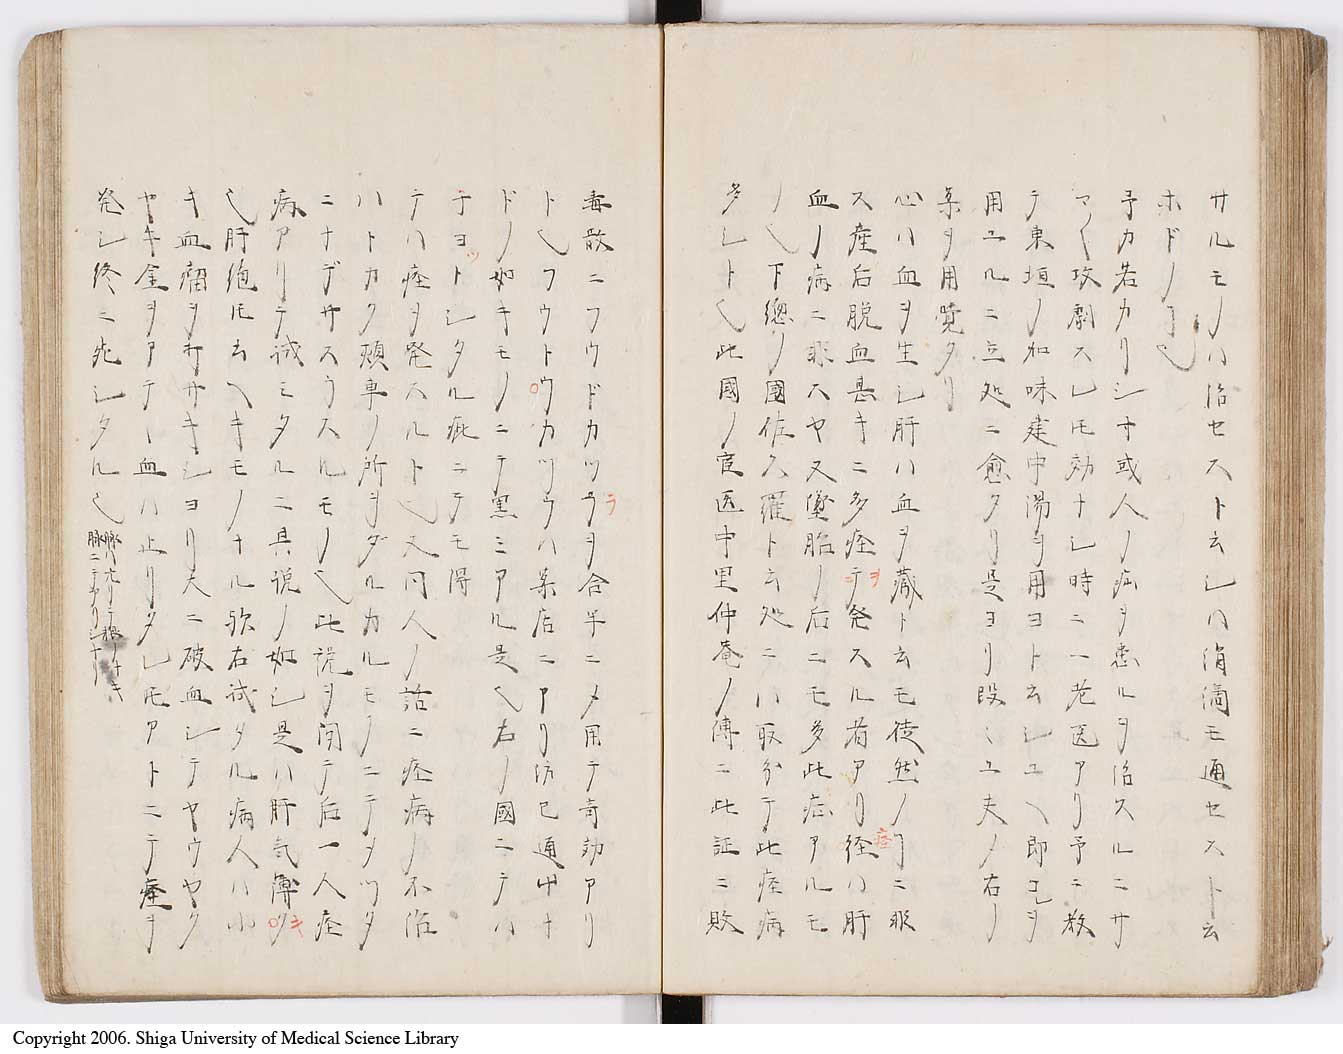 サルモノハ治セスト云シハ涓滴モ通セスト云
ホドノヿ也
予カ若カリシ寸或人ノ疝ヲ患ルヲ治スルニサ
マ〱攻劇スレ𪜈効ナシ時ニ一老医アリ予ニ教
テ東垣ノ加味建中湯ヲ用ヨト云シユヘ即コレヲ
用ユルニ立処ニ愈タリ是ヨリ段〻ユ夫ノ右ノ
薬ヲ用覚タリ
心ハ血ヲ生シ肝ハ血ヲ蔵ト云モ徒然ノヿニ非
ス産后脱血甚キニ多痓ヲ発スル者アリ痓ハ肝
血ノ病ニ非スヤ又墮胎ノ后ニモ多此症アルモ
ノ也下總ノ國佐久羅ト云処ニハ取分テ此痓病
多シト也此國ノ官医中里仲庵ノ傳ニ此証ニ敗
毒散ニフウドカツラヲ合半ニメ用テ奇効アリ
ト也フウトウカツラハ薬店ニアリ防已通艸ナ
ドノ如キモノニテ黒ミアル是也右ノ國ニテハ
チヨツトシタル疵ニテモ得
テハ痓ヲ発スルト也又同人ノ話ニ痓病ノ不治
ハトカク頬車ノ所ヲダルカルモノニテヲツタ
ニナデサスラスルモノ也此説ヲ聞テ后一人痓
病アリテ試ミタルニ具説ノ如シ是ハ肝気愽キ
也肝絶𪜈云ヘキモノナル歟右試タル病人ハ小
キ血瘤ヲ打サキシヨリ大ニ破血シテヤウヤク
ヤキ金ヲアテヽ血ハ止リタレ𪜈アトニテ痓ヲ
発シ終ニ死シタル也